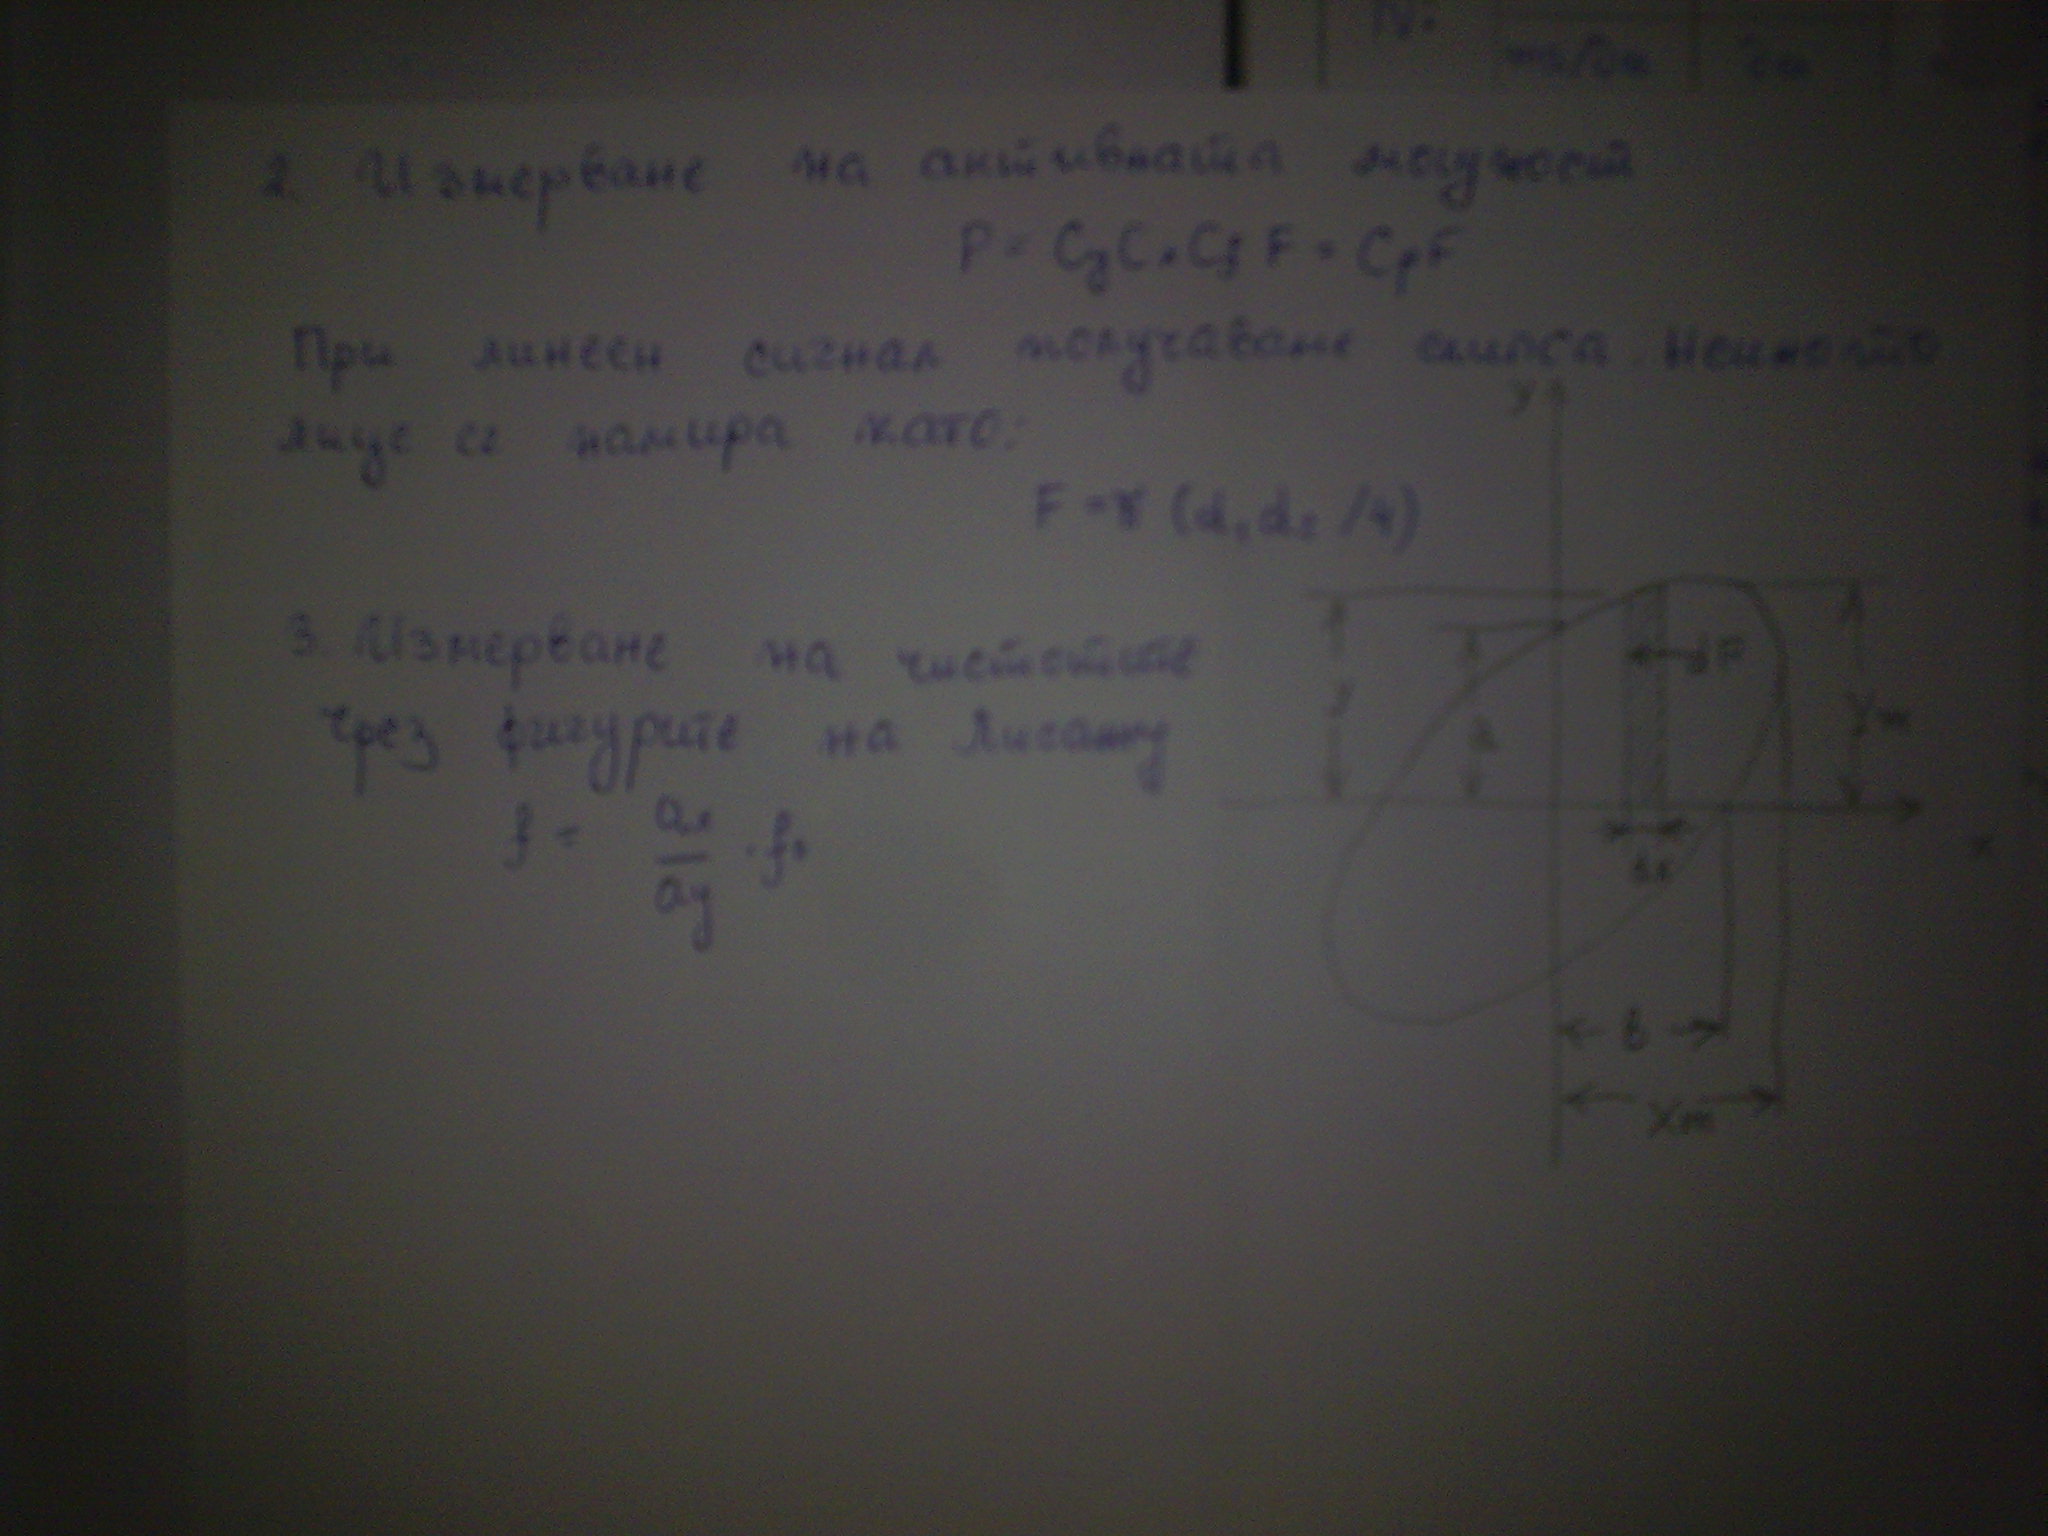 N:
2. Измерване на активната мощност
P = CyCxCf F = CpF
При линеен сигнал получаваме елипса. Нейното
лице се намира като:
y
F = π (d₁d₂/4)
3. Измерване на честотите
чрез фигурите на Лисажу
dF
y
a
Ym
f = ax/ay · fx
dx
x
b
Xm